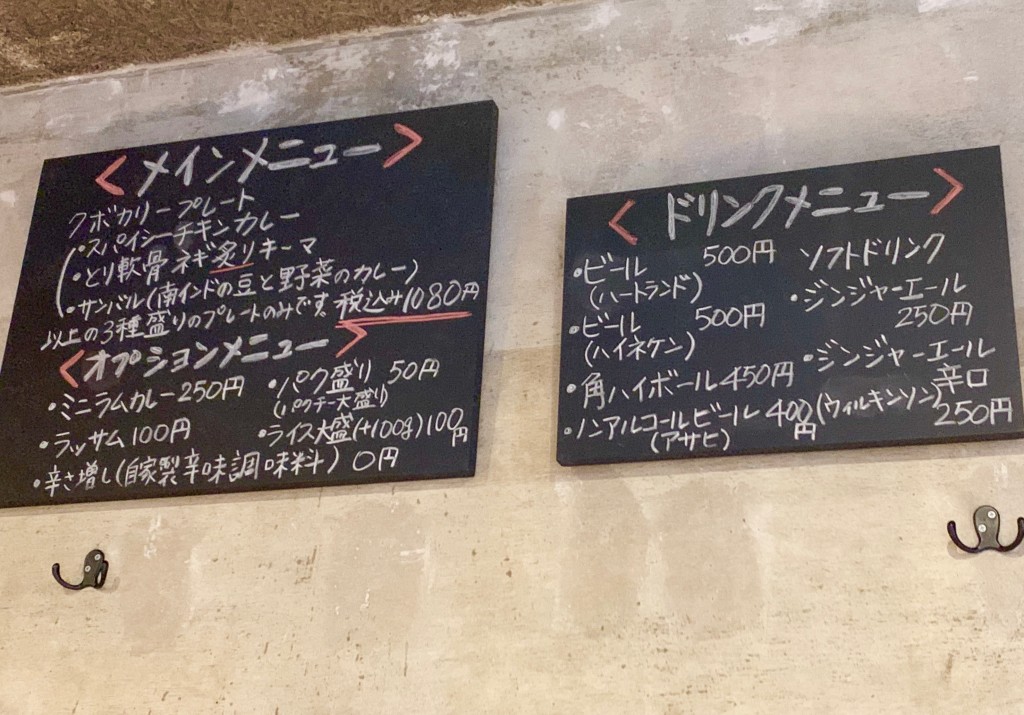 < メインメニュー >
クボカリープレート
・スパイシーチキンカレー
・とり軟骨ネギ炙りキーマ
・サンバル(南インドの豆と野菜のカレー)
以上の3種盛りのプレートのみです。税込み1080円
< オプションメニュー >
・ミニラムカレー250円
・パク盛り 50円
(パクチー大盛り)
・ラッサム100円
・ライス大盛(+100g)100円
・辛さ増し(自家製辛味調味料) 0円
< ドリンクメニュー >
・ビール 500円
(ハートランド)
・ビール 500円
(ハイネケン)
・角ハイボール450円
・ノンアルコールビール 400円
(アサヒ)
ソフトドリンク
・ジンジャーエール
250円
・ジンジャーエール
辛口
(ウィルキンソン)
250円